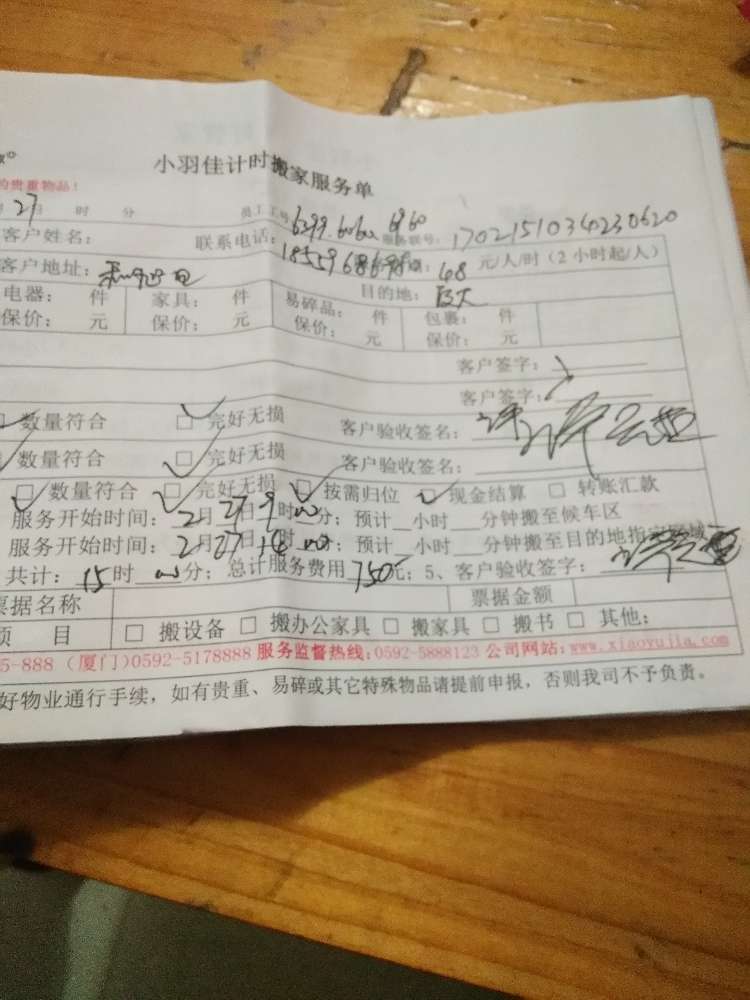 小羽佳计时搬家服务单
的贵重物品！
月27日 时 分 员工工号 6299.6060 6960 服务联号：17021510340230620
客户姓名： 联系电话：18559 48 元/人/时（2小时起/人）
客户地址： 目的地：
电器： 件 家具： 件 易碎品： 件 包裹： 件
保价： 元 保价： 元 保价： 元 保价： 元
客户签字：
客户签字：
数量符合 □ 完好无损 客户验收签名：
数量符合 □ 完好无损 客户验收签名：
□ 数量符合 □ 完好无损 □ 按需归位 □ 现金结算 □ 转账汇款
服务开始时间：2月27日9时00分；预计 小时 分钟搬至候车区
服务开始时间：2月27日14时00分；预计 小时 分钟搬至目的地指定区域
共计：15时00分；总计服务费用750元；5、客户验收签字：
票据名称 票据金额
项 目 □ 搬设备 □ 搬办公家具 □ 搬家具 □ 搬书 □ 其他：
5-888（厦门）0592-5178888 服务监督热线：0592-5888123 公司网站：www.xiaoyujia.com
好物业通行手续，如有贵重、易碎或其它特殊物品请提前申报，否则我司不予负责。